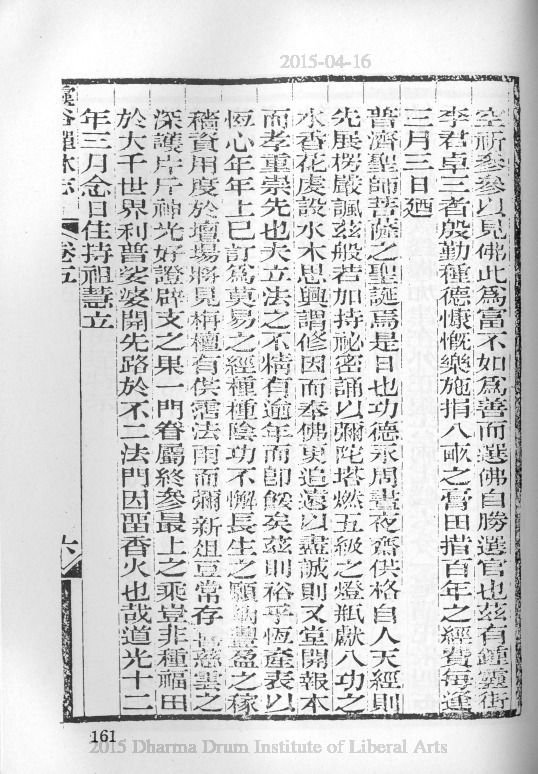 2015-04-16
空祈參參以見佛此為富不如為善而選佛自勝選官也茲有鍾靈街
李君卓三者殷勤種德慷慨樂施指八畝之膏田措百年之經費每逢
三月三日廼
普濟聖師菩薩之聖誕焉是日也功德永周晝夜齋供格自人天經則
先展楞嚴諷茲般若加持祕密誦以彌陀塔燃五級之燈瓶獻八功之
水香花虔設水木思興謂修因而奉佛更追遠以盡誠則又堂開報本
而孝重崇先也夫立法之不精有逾年而卽餒矣茲則裕乎恆產表以
恆心年年上已訂為莫易之經種種陰功不懈長生之願納豐盈之稼
穡資用度於壇場將見栴檀有供霑法雨而彌新俎豆常存 慈雲之
深護片片神光好證辟支之果一門眷屬終參最上之乘豈非種福田
於大千世界利普娑婆開先路於不二法門因留香火也哉道光十二
年三月念日住持祖慧立
雲谷禪林志
卷五
六
161
2015 Dharma Drum Institute of Liberal Arts